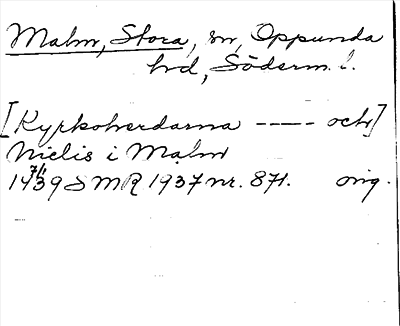 Malm, Stora, sn, Oppunda
hd, Söderm. l.
[Kyrkoherdarna ---- och]
Nielis i Malm
1439 7/1 SMR 1937 nr. 871. orig.